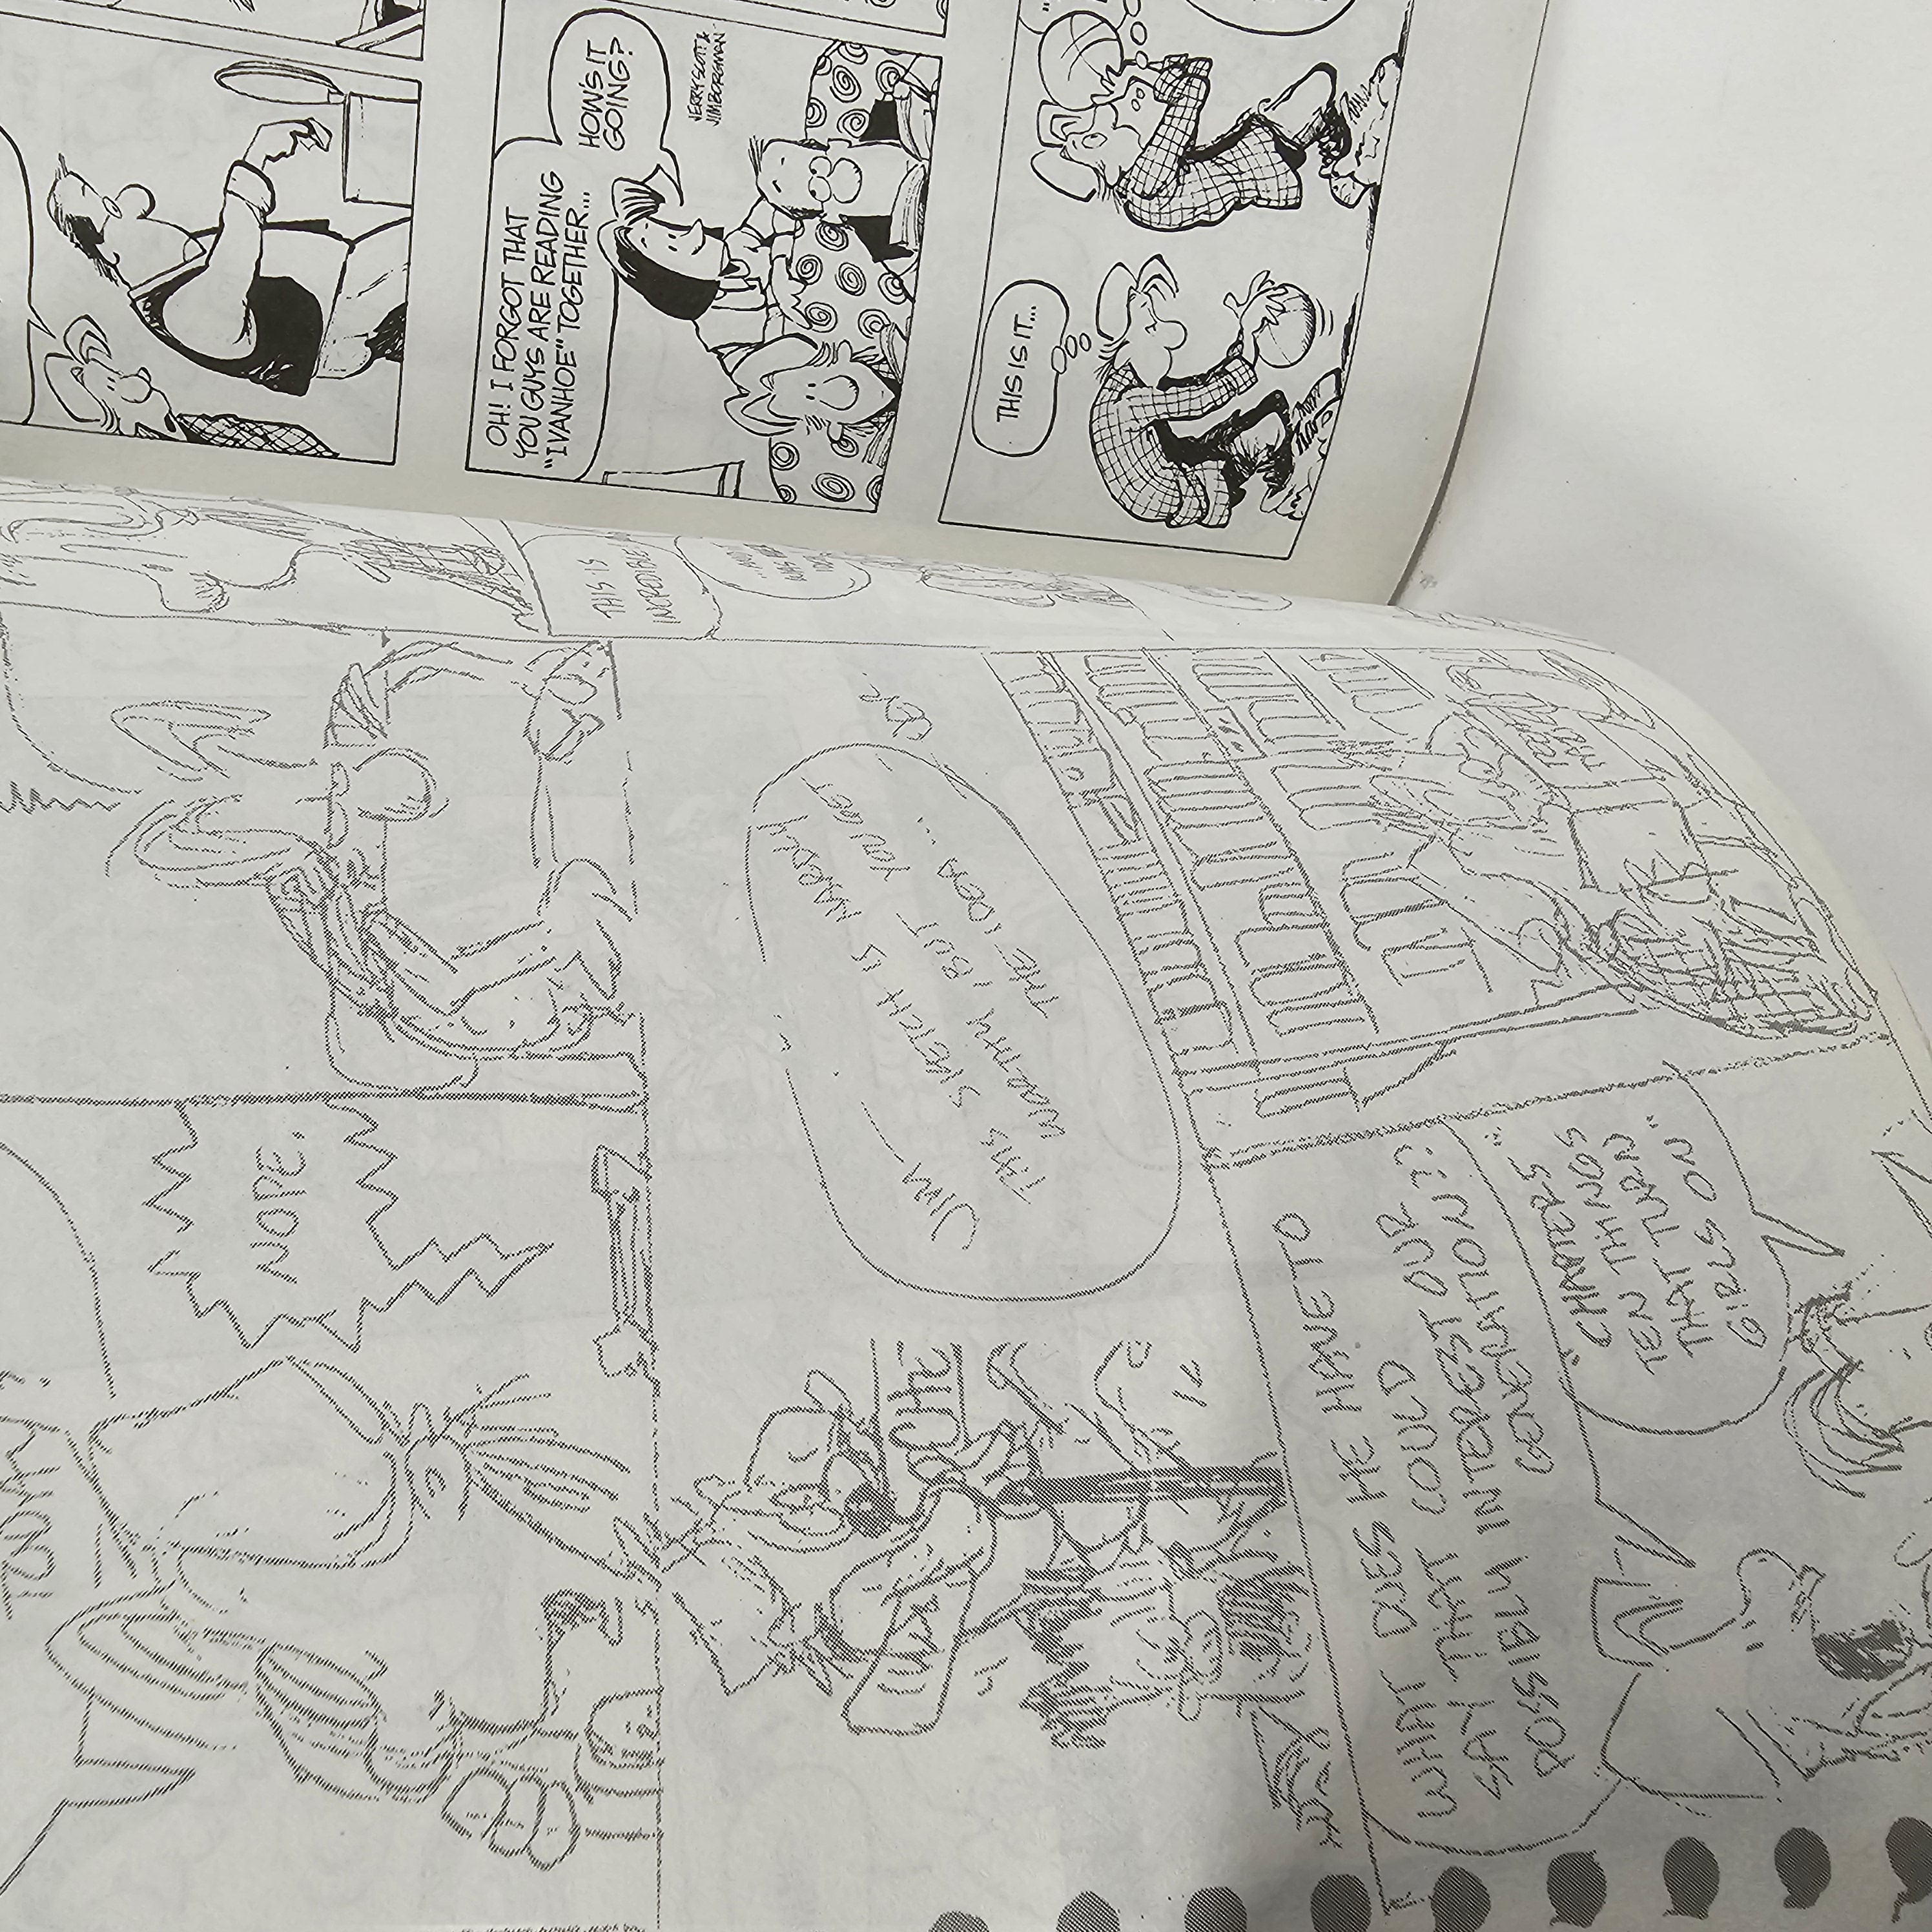 TODAY?
NOPE.
THIS IS
INCREDIBLE!
...AND IT
WAS HER
IDEA
JIM—
THIS SKETCH IS HARDLY
WORTHY, BUT YOU GET
THE IDEA...
WHAT DOES HE HAVE TO
SAY THAT COULD
POSSIBLY INTEREST OUR
GENERATION??
"CHAPTER 5:
TEN THINGS
THAT TURN
GIRLS ON"
OH! I FORGOT THAT
YOU GUYS ARE READING
"IVANHOE" TOGETHER...
HOW'S IT
GOING?
JERRY SCOTT &
JIM BORGMAN
THIS IS IT...